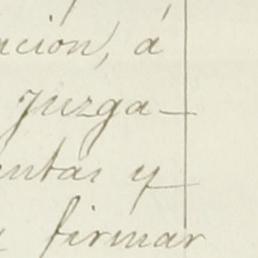 ación, á
juzga-
entas y
firmar